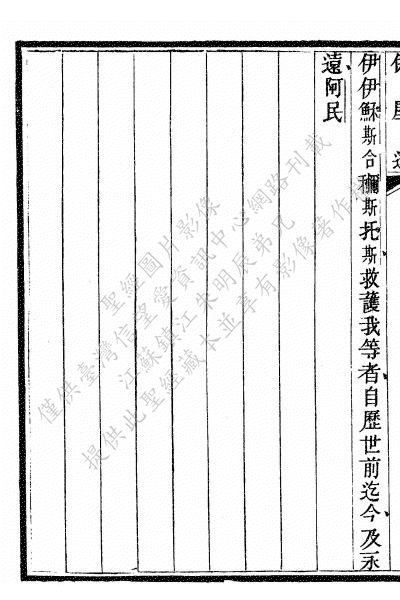 伊伊穌斯合穪斯托斯救護我等者自歷世前迄今及永
遠阿民
聖經圖片影像
僅供臺灣信望愛資訊中心網路刊載
江蘇鎮江朱明辰弟兄
提供此聖經藏本並享有影像著作權